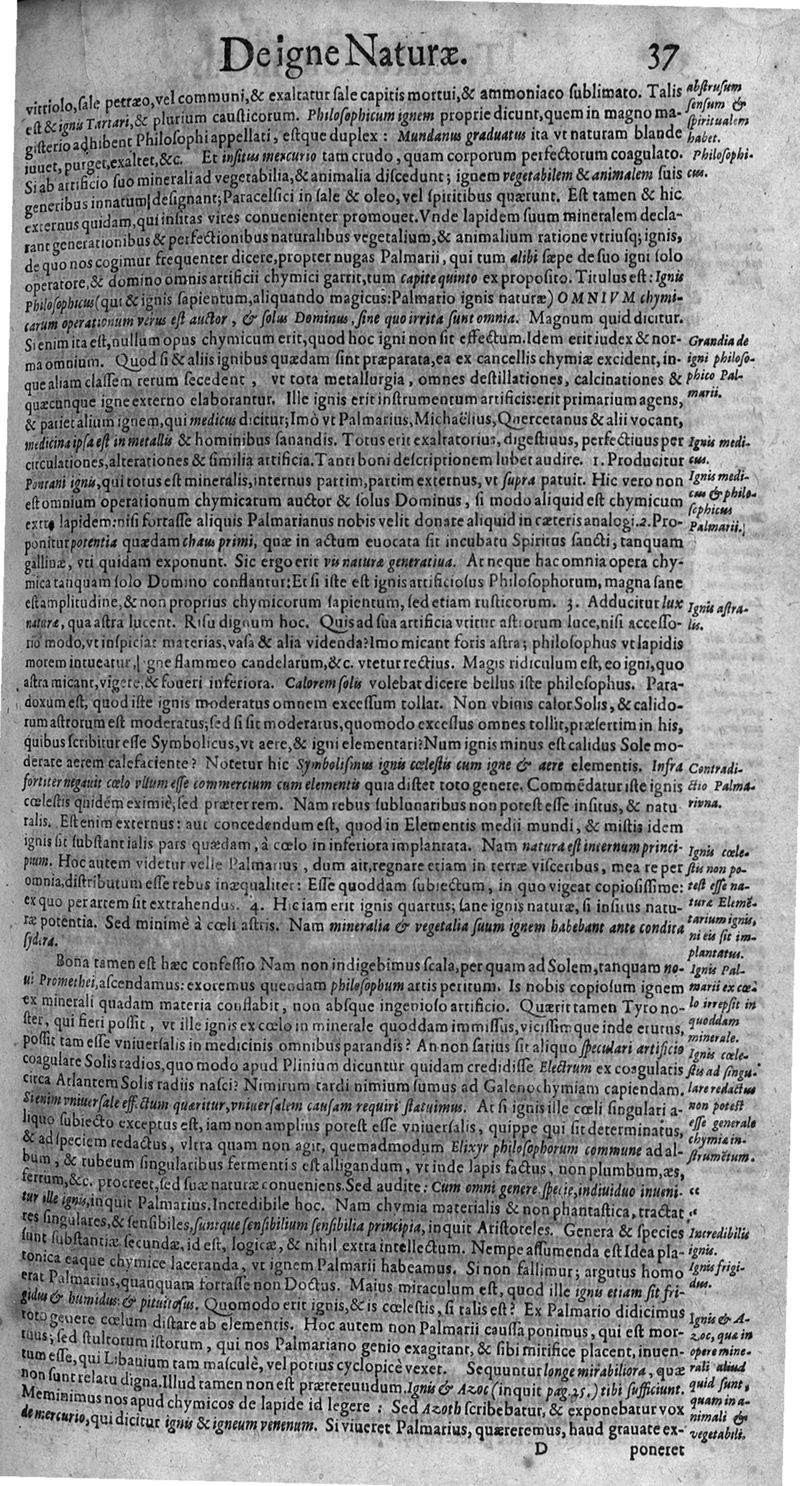 De igne Naturæ. 37
vitriolo, ſale petræo, vel communi, & exaltatur ſale capitis mortui, & ammoniaco ſublimato. Talis
eſt & ignis Tartari, & plurium cauſticorum. Philoſophicum ignem proprie dicunt, quem in magno ma-
giſterio adhibent Philoſophi appellati, eſtque duplex: Mundanus graduatus ita vt naturam blande
iuuet, purget, exaltet, &c. Et inſitus mercurio tam crudo, quam corporum perfectorum coagulato.
Si ab artificio ſuo minerali ad vegetabilia, & animalia diſcedunt; ignem vegetabilem & animalem ſuis
generibus innatum deſignant; Paracelſici in ſale & oleo, vel ſpiritibus quærunt. Eſt tamen & hic
externus quidam, qui inſitas vires conuenienter promouet. Vnde lapidem ſuum mineralem decla-
rant generationibus & perfectionibus naturalibus vegetalium, & animalium ratione vtriuſq; ignis,
de quo nos cogimur frequenter dicere, propter nugas Palmarii, qui tum alibi ſæpe de ſuo igni ſolo
operatore, & domino omnis artificii chymici garrit, tum capite quinto ex propoſito. Titulus eſt: Ignis
Philoſophicus (qui & ignis ſapientum, aliquando magicus: Palmario ignis naturæ) OMNIVM chymi-
carum operationum verus eſt auctor, & ſolus Dominus, ſine quo irrita ſunt omnia. Magnum quid dicitur.
Si enim ita eſt, nullum opus chymicum erit, quod hoc igni non ſit effectum. Idem erit iudex & nor-
ma omnium. Quod ſi & aliis ignibus quædam ſint præparata, ea ex cancellis chymiæ excident, in-
que aliam claſſem rerum ſecedent, vt tota metallurgia, omnes deſtillationes, calcinationes &
quæcunque igne externo elaborantur. Ille ignis erit inſtrumentum artificis: erit primarium agens,
& pariet alium ignem, qui medicus dicitur; Imò vt Palmarius, Michaëlius, Quercetanus & alii vocant,
medicina ipſa eſt in metallis & hominibus ſanandis. Totus erit exaltatorius, digeſtiuus, perfectiuus per
circulationes, alterationes & ſimilia artificia. Tanti boni deſcriptionem lubet audire. 1. Producitur
Pontani ignis, qui totus eſt mineralis, internus partim, partim externus, vt ſupra patuit. Hic vero non
eſt omnium operationum chymicarum auctor & ſolus Dominus, ſi modo aliquid eſt chymicum
extra lapidem: niſi fortaſſe aliquis Palmarianus nobis velit donare aliquid in cæteris analogi. 2. Pro-
ponitur potentia quædam chaus primi, quæ in actum euocata ſit incubatu Spiritus ſancti, tanquam
gallinæ, vti quidam exponunt. Sic ergo erit vis naturæ generatiua. At neque hac omnia opera chy-
mica tanquam ſolo Domino conflantur: Et ſi iſte eſt ignis artificioſus Philoſophorum, magna ſane
eſt amplitudine, & non proprius chymicorum ſapientum, ſed etiam ruſticorum. 3. Adducitur lux
naturæ, qua aſtra lucent. Riſu dignum hoc. Quis ad ſua artificia vtitur aſtrorum luce, niſi acceſſo-
rio modo, vt inſpiciat materias, vaſa & alia videnda? Imo micant foris aſtra; philoſophus vt lapidis
morem intueatur, igne flammeo candelarum, &c. vtetur rectius. Magis ridiculum eſt, eo igni, quo
aſtra micant, vigere, & foueri inferiora. Calorem ſolis volebat dicere bellus iſte philoſophus. Para-
doxum eſt, quod iſte ignis moderatus omnem exceſſum tollat. Non vbinis calor Solis, & calido-
rum aſtrorum eſt moderatus; ſed ſi ſit moderatus, quomodo exceſſus omnes tollit, præſertim in his,
quibus ſcribitur eſſe Symbolicus, vt aere, & igni elementari? Num ignis minus eſt calidus Sole mo-
derate aerem calefaciente? Notetur hic Symboliſmus ignis cœleſtis cum igne & aere elementis. Infra
fortiter negauit cœlo vllum eſſe commercium cum elementis quia diſtet toto genere. Commēdatur iſte ignis
cœleſtis quidem eximiè, ſed præter rem. Nam rebus ſublunaribus non poteſt eſſe inſitus, & natu
ralis. Eſt enim externus: aut concedendum eſt, quod in Elementis medii mundi, & miſtis idem
ignis ſit ſubſtantialis pars quædam, à cœlo in inferiora implantata. Nam natura eſt internum princi-
pium. Hoc autem videtur velle Palmarius, dum ait, regnare etiam in terræ viſceribus, mea re per
omnia, diſtributum eſſe rebus inæqualiter: Eſſe quoddam ſubiectum, in quo vigeat copioſiſſime:
ex quo per artem ſit extrahendus. 4. Hic iam erit ignis quartus; ſane ignis naturæ, ſi inſitus natu-
ræ potentia. Sed minimè à cœli aſtris. Nam mineralia & vegetalia ſuum ignem habebant ante condita
ſydera.
Bona tamen eſt hæc confeſſio Nam non indigebimus ſcala, per quam ad Solem, tanquam no-
ui Promethei, aſcendamus: exoremus quendam philoſophum artis peritum. Is nobis copioſum ignem
ex minerali quadam materia conflabit, non abſque ingenioſo artificio. Quærit tamen Tyro no-
ſter, qui fieri poſſit, vt ille ignis ex cœlo in minerale quoddam immiſſus, viciſſimque inde erutus,
poſſit tam eſſe vniuerſalis in medicinis omnibus parandis? An non ſatius ſit aliquo ſpeculari artificio
coagulare Solis radios, quo modo apud Plinium dicuntur quidam credidiſſe Electrum ex coagulatis
circa Atlantem Solis radiis naſci? Nimirum tardi nimium ſumus ad Galenochymiam capiendam.
Si enim vniuerſale effectum quæritur, vniuerſalem cauſam requiri ſtatuimus. At ſi ignis ille cœli ſingulari a-
liquo ſubiecto exceptus eſt, iam non amplius poteſt eſſe vniuerſalis, quippe qui ſit determinatus,
& ad ſpeciem redactus, vltra quam non agit, quemadmodum Elixyr philoſophorum commune ad al-
bum, & rubeum ſingularibus fermentis eſt alligandum, vt inde lapis factus, non plumbum, æs,
ferrum, &c. procreet, ſed ſuæ naturæ conueniens. Sed audite: Cum omni genere, ſpecie, indiuiduo inueni-
tur ille ignis, inquit Palmarius. Incredibile hoc. Nam chymia materialis & non phantaſtica, tractat
res ſingulares, & ſenſibiles, ſuntque ſenſibilium ſenſibilia principia, inquit Ariſtoteles. Genera & ſpecies
ſunt ſubſtantiæ ſecundæ, id eſt, logicæ, & nihil extra intellectum. Nempe aſſumenda eſt Idea pla-
tonica eaque chymice laceranda, vt ignem Palmarii habeamus. Si non fallimur; argutus homo
erat Palmarius, quanquam fortaſſe non Doctus. Maius miraculum eſt, quod ille ignis etiam ſit fri-
gidus & humidus: & pituitoſus. Quomodo erit ignis, & is cœleſtis, ſi talis eſt? Ex Palmario didicimus
toto genere cœlum diſtare ab elementis. Hoc autem non Palmarii cauſſa ponimus, qui eſt mor-
tuus; ſed ſtultorum iſtorum, qui nos Palmariano genio exagitant, & ſibi mirifice placent, inuen-
tum eſſe, qui Libauium tam maſculè, vel potius cyclopicè vexet. Sequuntur longe mirabiliora, quæ
non ſunt relatu digna. Illud tamen non eſt prætereundum. Ignis & Azoc (inquit pag. 25.) tibi ſufficiunt.
Meminimus nos apud chymicos de lapide id legere: Sed Azoth ſcribebatur, & exponebatur vox
de mercurio, qui dicitur ignis & igneum venenum. Si viueret Palmarius, quæreremus, haud grauate ex-
D poneret
abſtruſum
ſenſum &
ſpiritualem
habet.
Philoſophi-
cus.
Grandia de
igni philoſo-
phico Pal-
marii.
Ignis medi-
cus.
Ignis medi-
cus & philo-
ſophicus
Palmarii.
Ignis aſtra-
lis.
Contradi-
ctio Palma-
riana.
Ignis cœle-
ſtis non po-
teſt eſſe na-
turæ Elemē-
tarium ignis,
ni eis ſit im-
plantatus.
Ignis Pal-
marii ex cœ-
lo irrepſit in
quoddam
minerale.
Ignis cœle-
ſtis ad ſingu-
lare redactus
non poteſt
eſſe generale
chymia in-
ſtrumētum.
“
“
Incredibilis
ignis.
Ignis frigi-
dus.
Ignis & A-
zoc, qua in
opere mine-
rali aliud
quid ſunt,
quam in a-
nimali &
vegetabili.